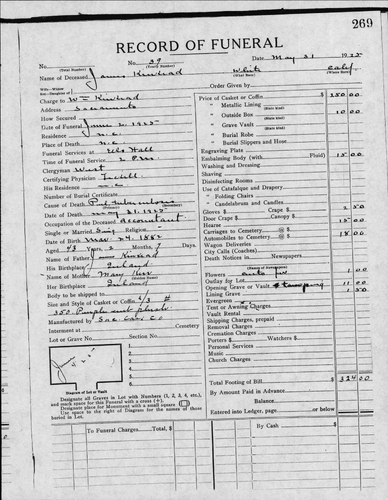 269
RECORD OF FUNERAL
No. 39 Date May 31 1925
(Total Number) (Yearly Number)
Name of Deceased James Kinkead White Calif.
(What Race) (Where Born)
Wife—Widow
Son—Daughter of
Order Given By
Charge to Wm Kinkead
Address Sacramento
How Secured
Date of Funeral June 2, 1925
Residence n.c.
Place of Death n.c.
Funeral Services at Elks Hall
Time of Funeral Service 2 P.M.
Clergyman West
Certifying Physician
His Residence n.c.
Number of Burial Certificate
Cause of Death Pul Tuberculosis
Date of Death May 31, 1925
Occupation of the Deceased Accountant
Single or Married Sing Religion
Date of Birth Mar 24 1882
Aged 43 Years, 2 Months, 7 Days.
Name of Father James Kinkead
His Birthplace Ireland
Name of Mother Mary Kerr
Her Birthplace Ireland
Body to be shipped to
Size and Style of Casket or Coffin 6/3 #
350 Purple
Manufactured by Sac. Cas. Co
Interment at Cemetery
Lot or Grave No. Section No.
Diagram of Lot or Vault
Designate all Graves in Lot with Numbers (1, 2, 3, 4, etc.),
and mark space for this Funeral with a cross (+).
Designate place for Monument with a small square
Use space to right of Diagram for the names of those
buried in Lot.
Price of Casket or Coffin $ 250 00
" Metallic Lining
(State Kind)
" Outside Box 10 00
(State Kind)
" Grave Vault
(State Kind)
" Burial Robe
" Burial Slippers and Hose
Engraving Plate
Embalming Body (with Fluid) 15 00
Washing and Dressing
Shaving
Disinfecting Rooms
Use of Catafalque and Drapery
" Folding Chairs
" Candelabrum and Candles
Gloves $ Crape $ 2 50
Door Crape $ Canopy $
Hearse 15 00
Carriages to Cemetery @
Automobiles to Cemetery @ 18 00
Wagon Deliveries
City Calls (Coaches)
Death Notices in Newspapers
(Names of Newspapers)
Flowers 1 00
Outlay for Lot
Opening Grave or Vault 11 00
Lining Grave 1 50
Evergreen
Tent or Awning Charges
Vault Rental
Shipping Charges, prepaid
Removal Charges
Cremation Charges
Porters $ Watchers $
Personal Services
Music
Church Charges
Total Footing of Bill $ 324 00
By Amount Paid in Advance
Balance
Entered into Ledger, page or below
To Funeral Charges Total, $
By Cash $